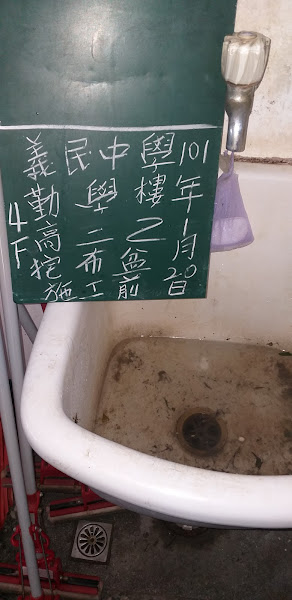 義民中學
勤學樓
4F高二乙
拖布盆
施工前
101年1月20日